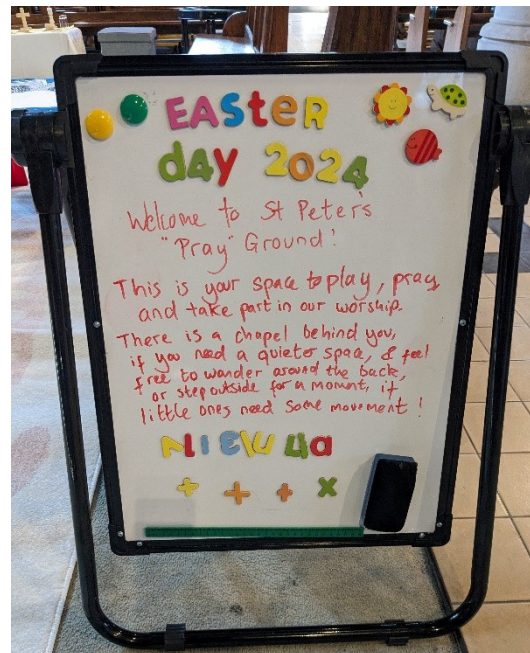 EASteR
day 2024
Welcome to St Peter's
"Pray" Ground!
This is your space to play, pray
and take part in our worship.
There is a chapel behind you,
if you need a quieter space, & feel
free to wander around the back,
or step outside for a moment, if
little ones need some movement!
AlIElu 4a
+ + + x